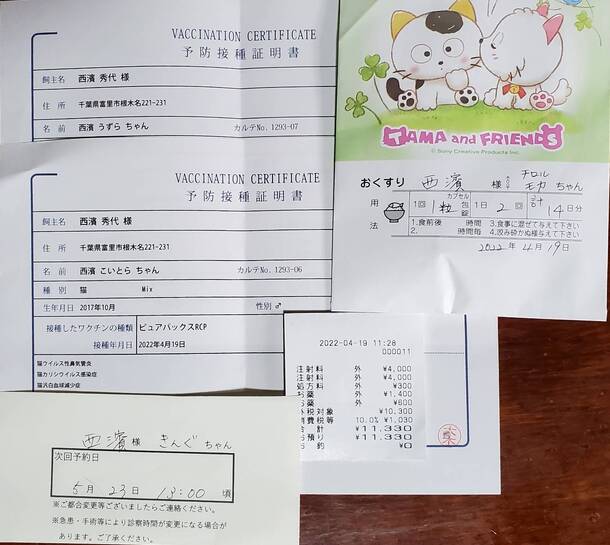 VACCINATION CERTIFICATE
予防接種証明書
飼主名 西濱 秀代 様
住 所 千葉県富里市根木名221-231
名 前 西濱 うずら ちゃん カルテNo. 1293-07
VACCINATION CERTIFICATE
予防接種証明書
飼主名 西濱 秀代 様
住 所 千葉県富里市根木名221-231
名 前 西濱 こいとら ちゃん カルテNo.1293-06
種 別 猫 Mix
生年月日 2017年10月 性別 ♂
接種したワクチンの種類 ピュアバックスRCP
接種年月日 2022年4月19日
猫ウイルス性鼻気管炎
猫カリシウイルス感染症
猫汎白血球減少症
TAMA and FRIENDS
© Sony Creative Products Inc.
おくすり 西濱 様 チロル モカ ちゃん
用法 1回 1 カプセル 粒 包 錠 1日 2 回 計 14 日分
1.食前後 時間 3.食事に混ぜて与えて下さい
2. 時間毎 4.咬み砕かぬ様与えて下さい
2022年 4月 19日
2022-04-19 11:28
000011
注射料 外 ¥4,000
注射料 外 ¥4,000
処方料 外 ¥300
お薬 外 ¥1,400
お薬 外 ¥600
外税対象 ¥10,300
消費税等 10.0% ¥1,030
合 計 ¥11,330
お預り ¥11,330
お釣 ¥0
西濱 様 きんぐ ちゃん
次回予約日
5月 23日 13:00 頃
※ご都合変更等ございましたらご連絡ください。
※急患・手術等により診察時間が変更になる場合が
あります。ご了承ください。